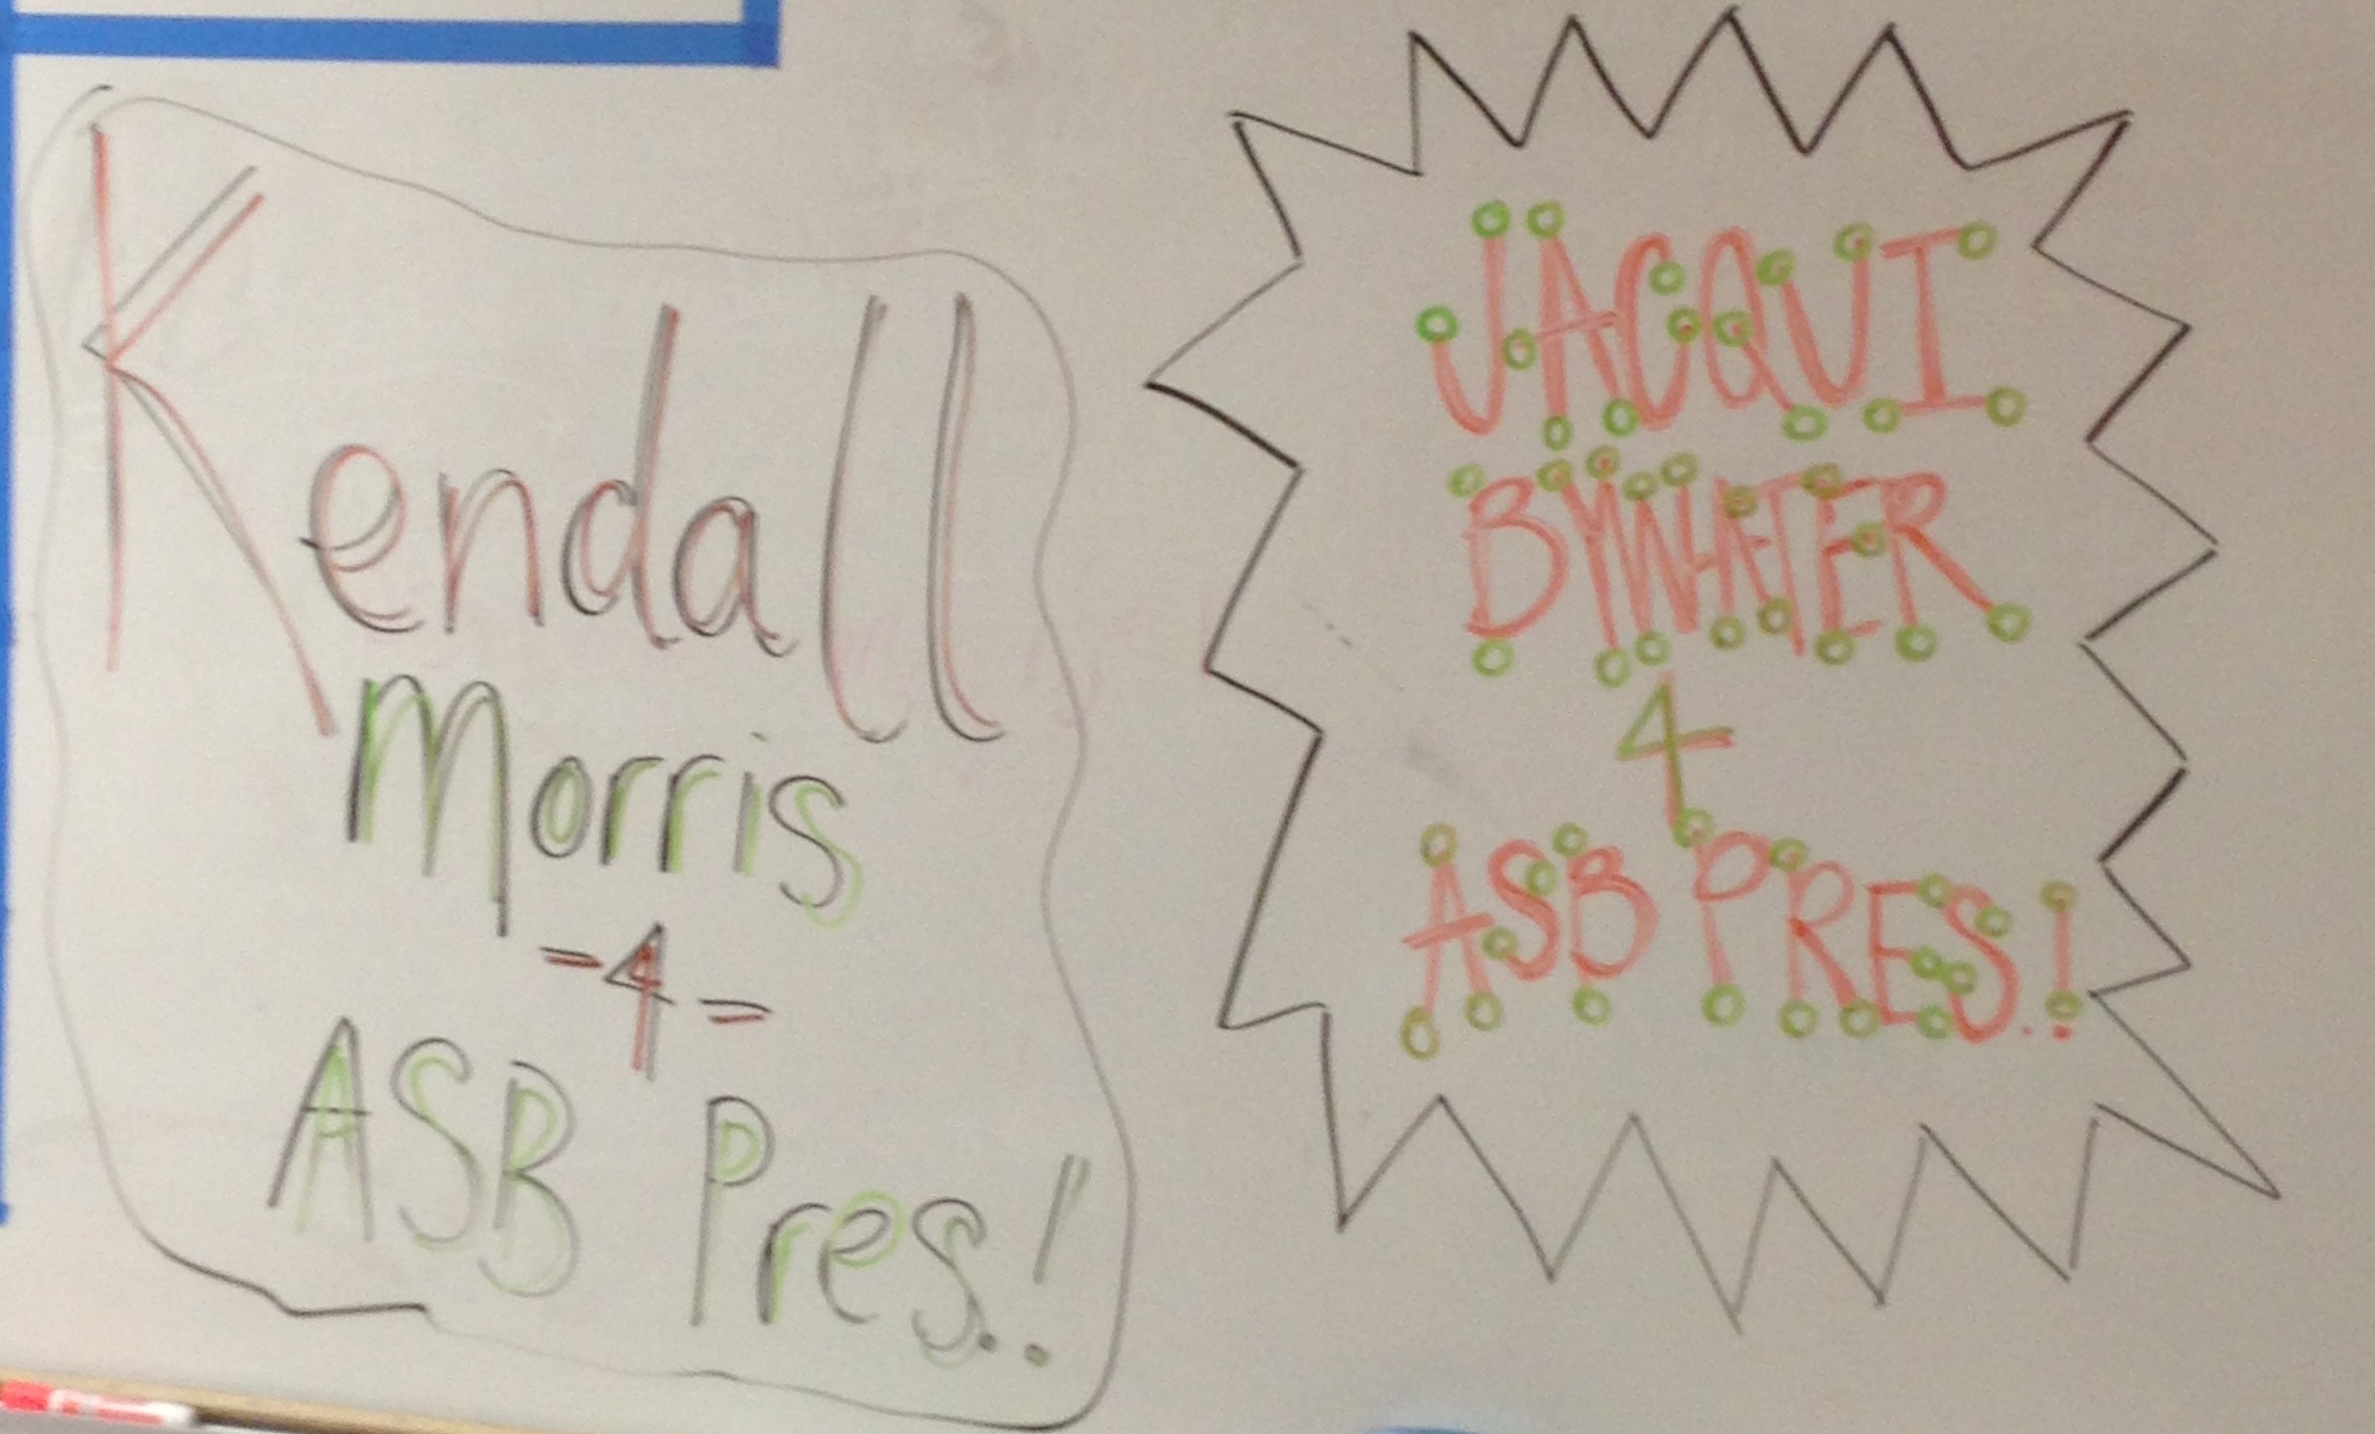 Kendall
Morris
-4-
ASB Pres.!
JACQUI
BYWATER
4
ASB PRES.!